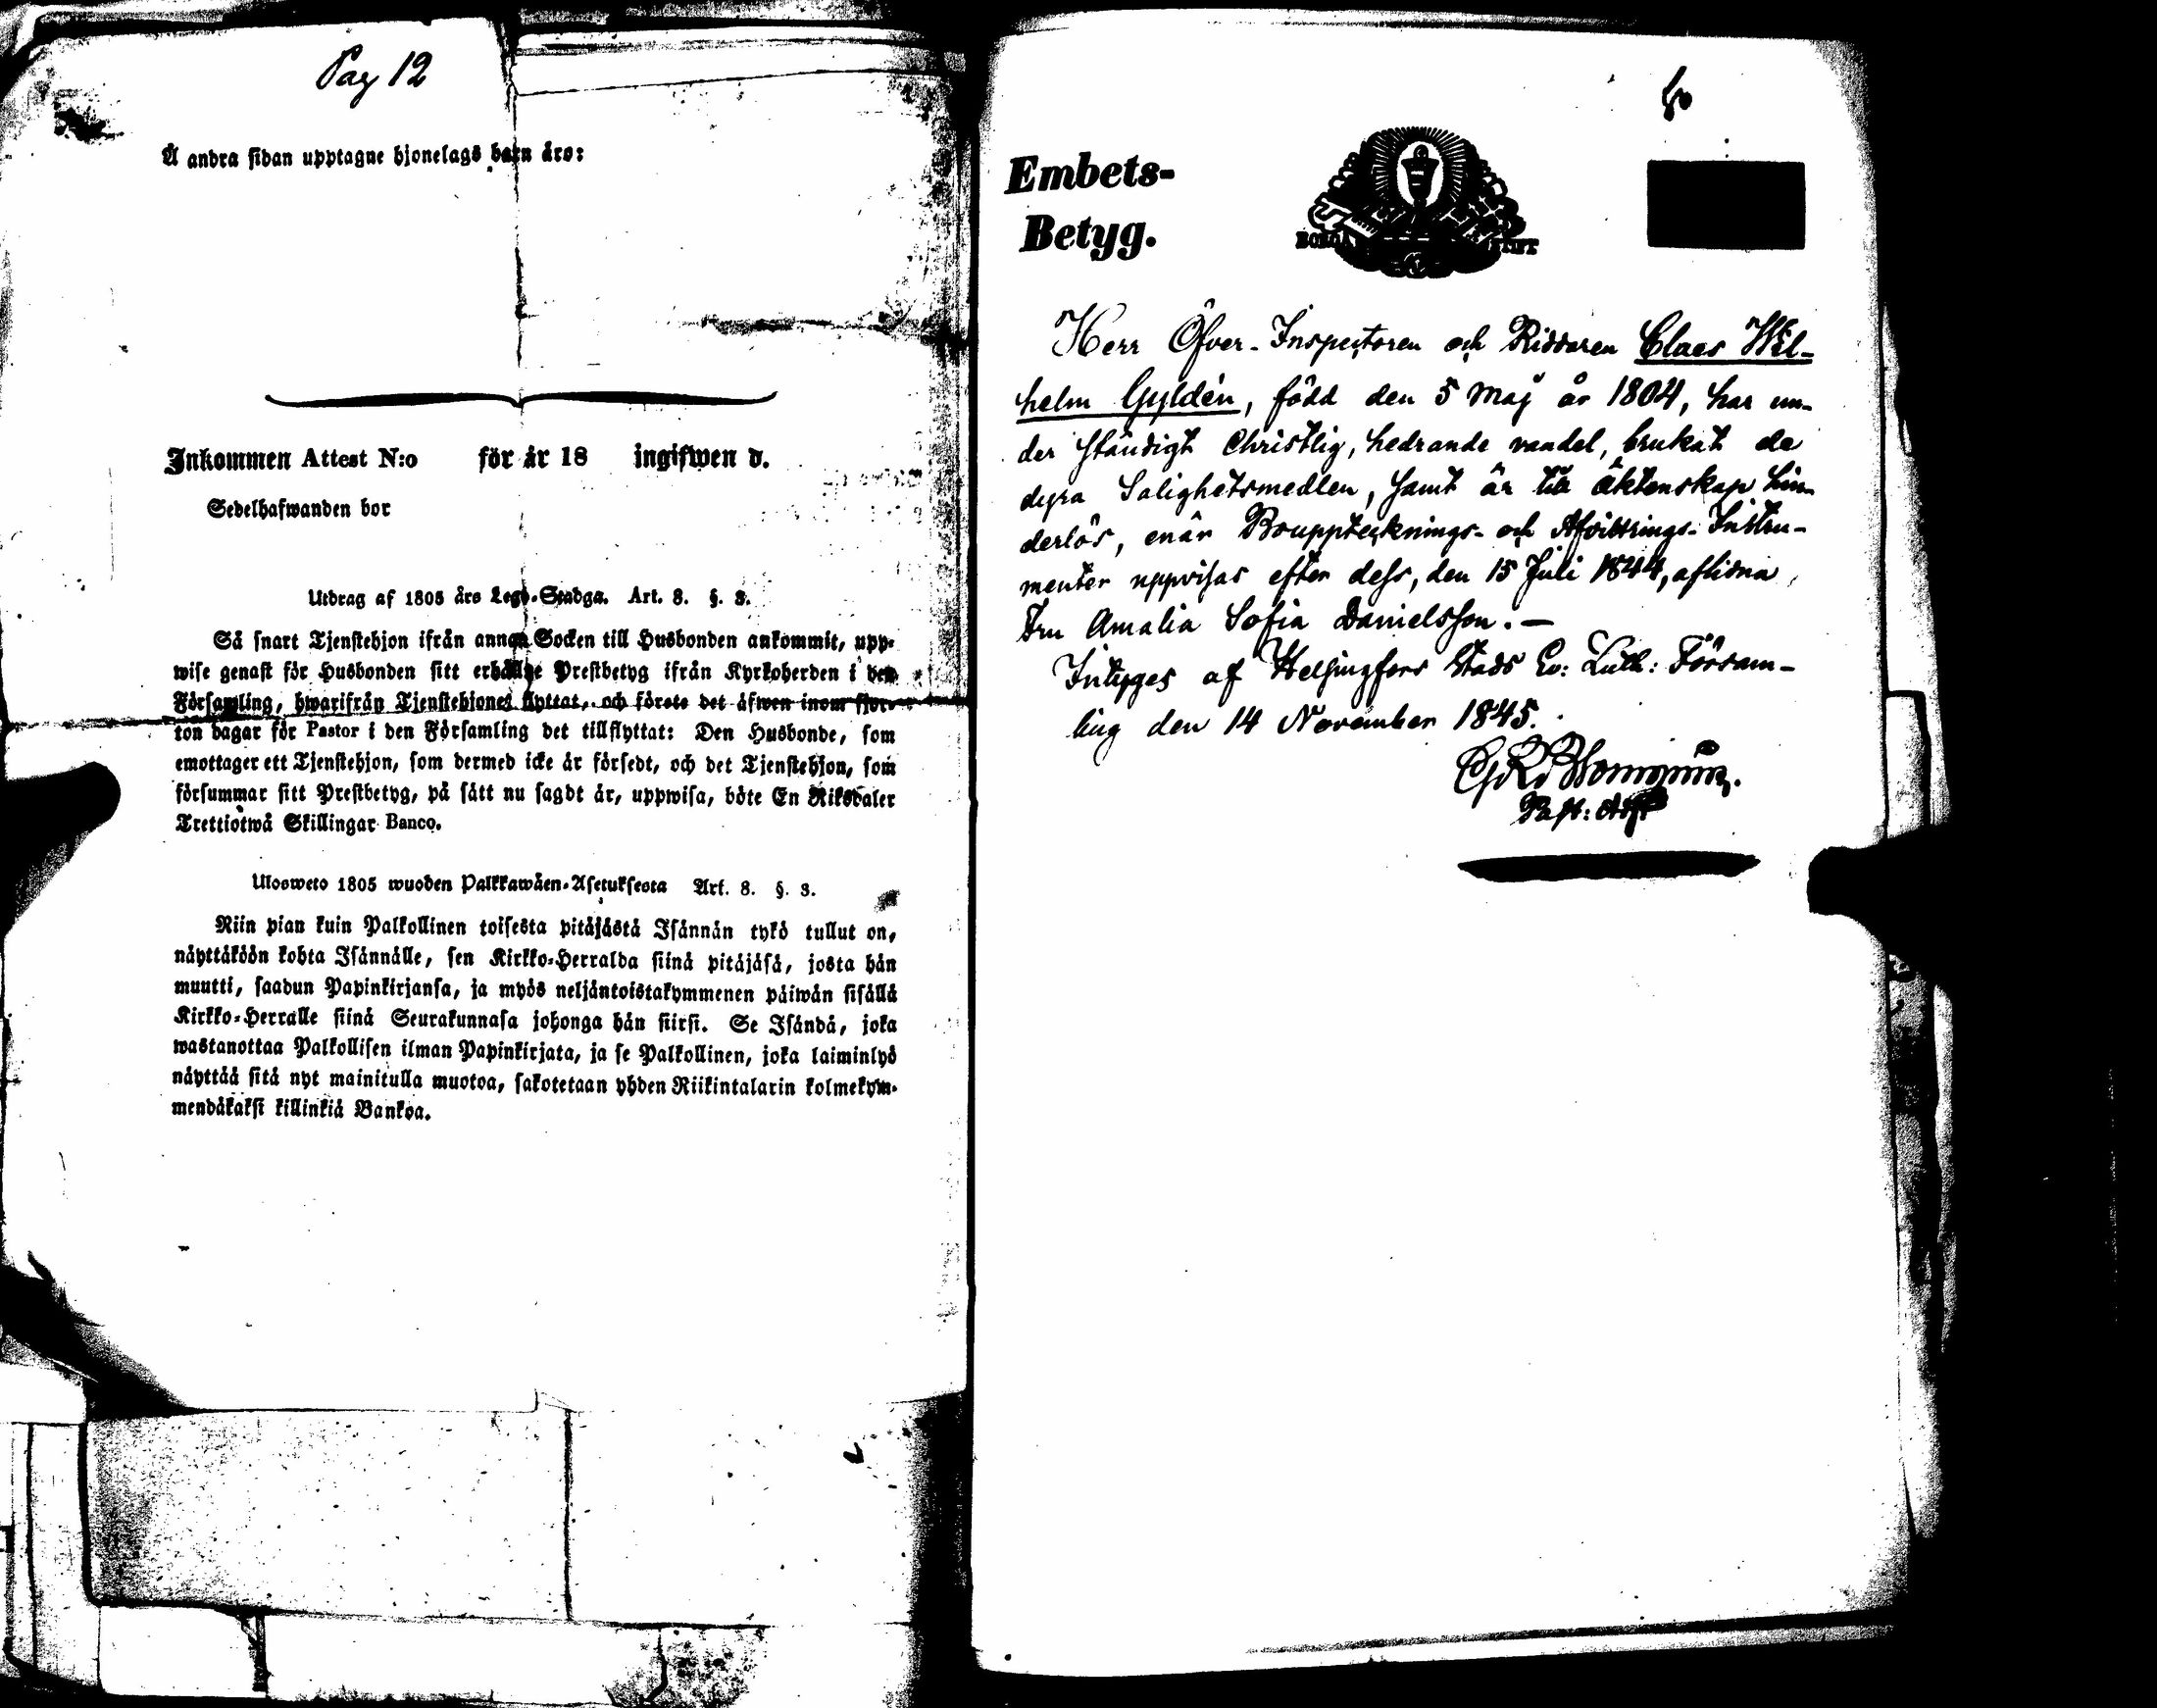 Pag 12
Å andra sidan upptagne hjonelags barn äro:
Inkommen Attest N:o för år 18 ingifwen d.
Sedelhafwanden bor
Utdrag af 1805 års Lego-Stadga. Art. 8. §. 3.
Så snart Tjenstehjon ifrån annan Socken till Husbonden ankommit, upp-
wise genast för Husbonden sitt erhållne Prestbetyg ifrån Kyrkoherden i den
Församling, hwarifrån Tjenstehjonet flyttat, och förete det äfwen inom fjor-
ton dagar för Pastor i den Församling det tillflyttat: Den Husbonde, som
emottager ett Tjenstehjon, som dermed icke är försedt, och det Tjenstehjon, som
försummar sitt Prestbetyg, på sätt nu sagdt är, uppwisa, böte En Riksdaler
Trettiotwå Skillingar Banco.
Ulosweto 1805 wuoden Palkkawäen-Asetuksesta Art. 8. §. 3.
Niin pian kuin Palkollinen toisesta pitäjästä Isännän tykö tullut on,
näyttäköön kohta Isännälle, sen Kirkko-Herralda siinä pitäjäsä, josta hän
muutti, saadun Papinkirjansa, ja myös neljäntoistakymmenen päiwän sisällä
Kirkko-Herralle siinä Seurakunnasa johonga hän siirsi. Se Isändä, joka
wastanottaa Palkollisen ilman Papinkirjata, ja se Palkollinen, joka laiminlyö
näyttää sitä nyt mainitulla muotoa, sakotetaan yhden Riikintalarin kolmekym-
mendäkaksi killinkiä Bankoa.
Embets-
Betyg.
BORGÅ STIFT
Herr Öfver-Inspectoren och Riddaren Claes Wil-
helm Gyldén, född den 5 Maj år 1804, har un-
der ständigt Christlig, hedrande vandel, brukat de
dyra Salighetsmedlen, samt är till äktenskap hin-
derlös, enär Bouppteknings- och Afvittrings-Instru-
menter uppvisas efter dess, den 15 Juli 1844, aflidna
Fru Amalia Sofia Danielsson. —
Intygas af Helsingfors Stads Ev: Luth: Försam-
ling den 14 November 1845.
Past: Adj